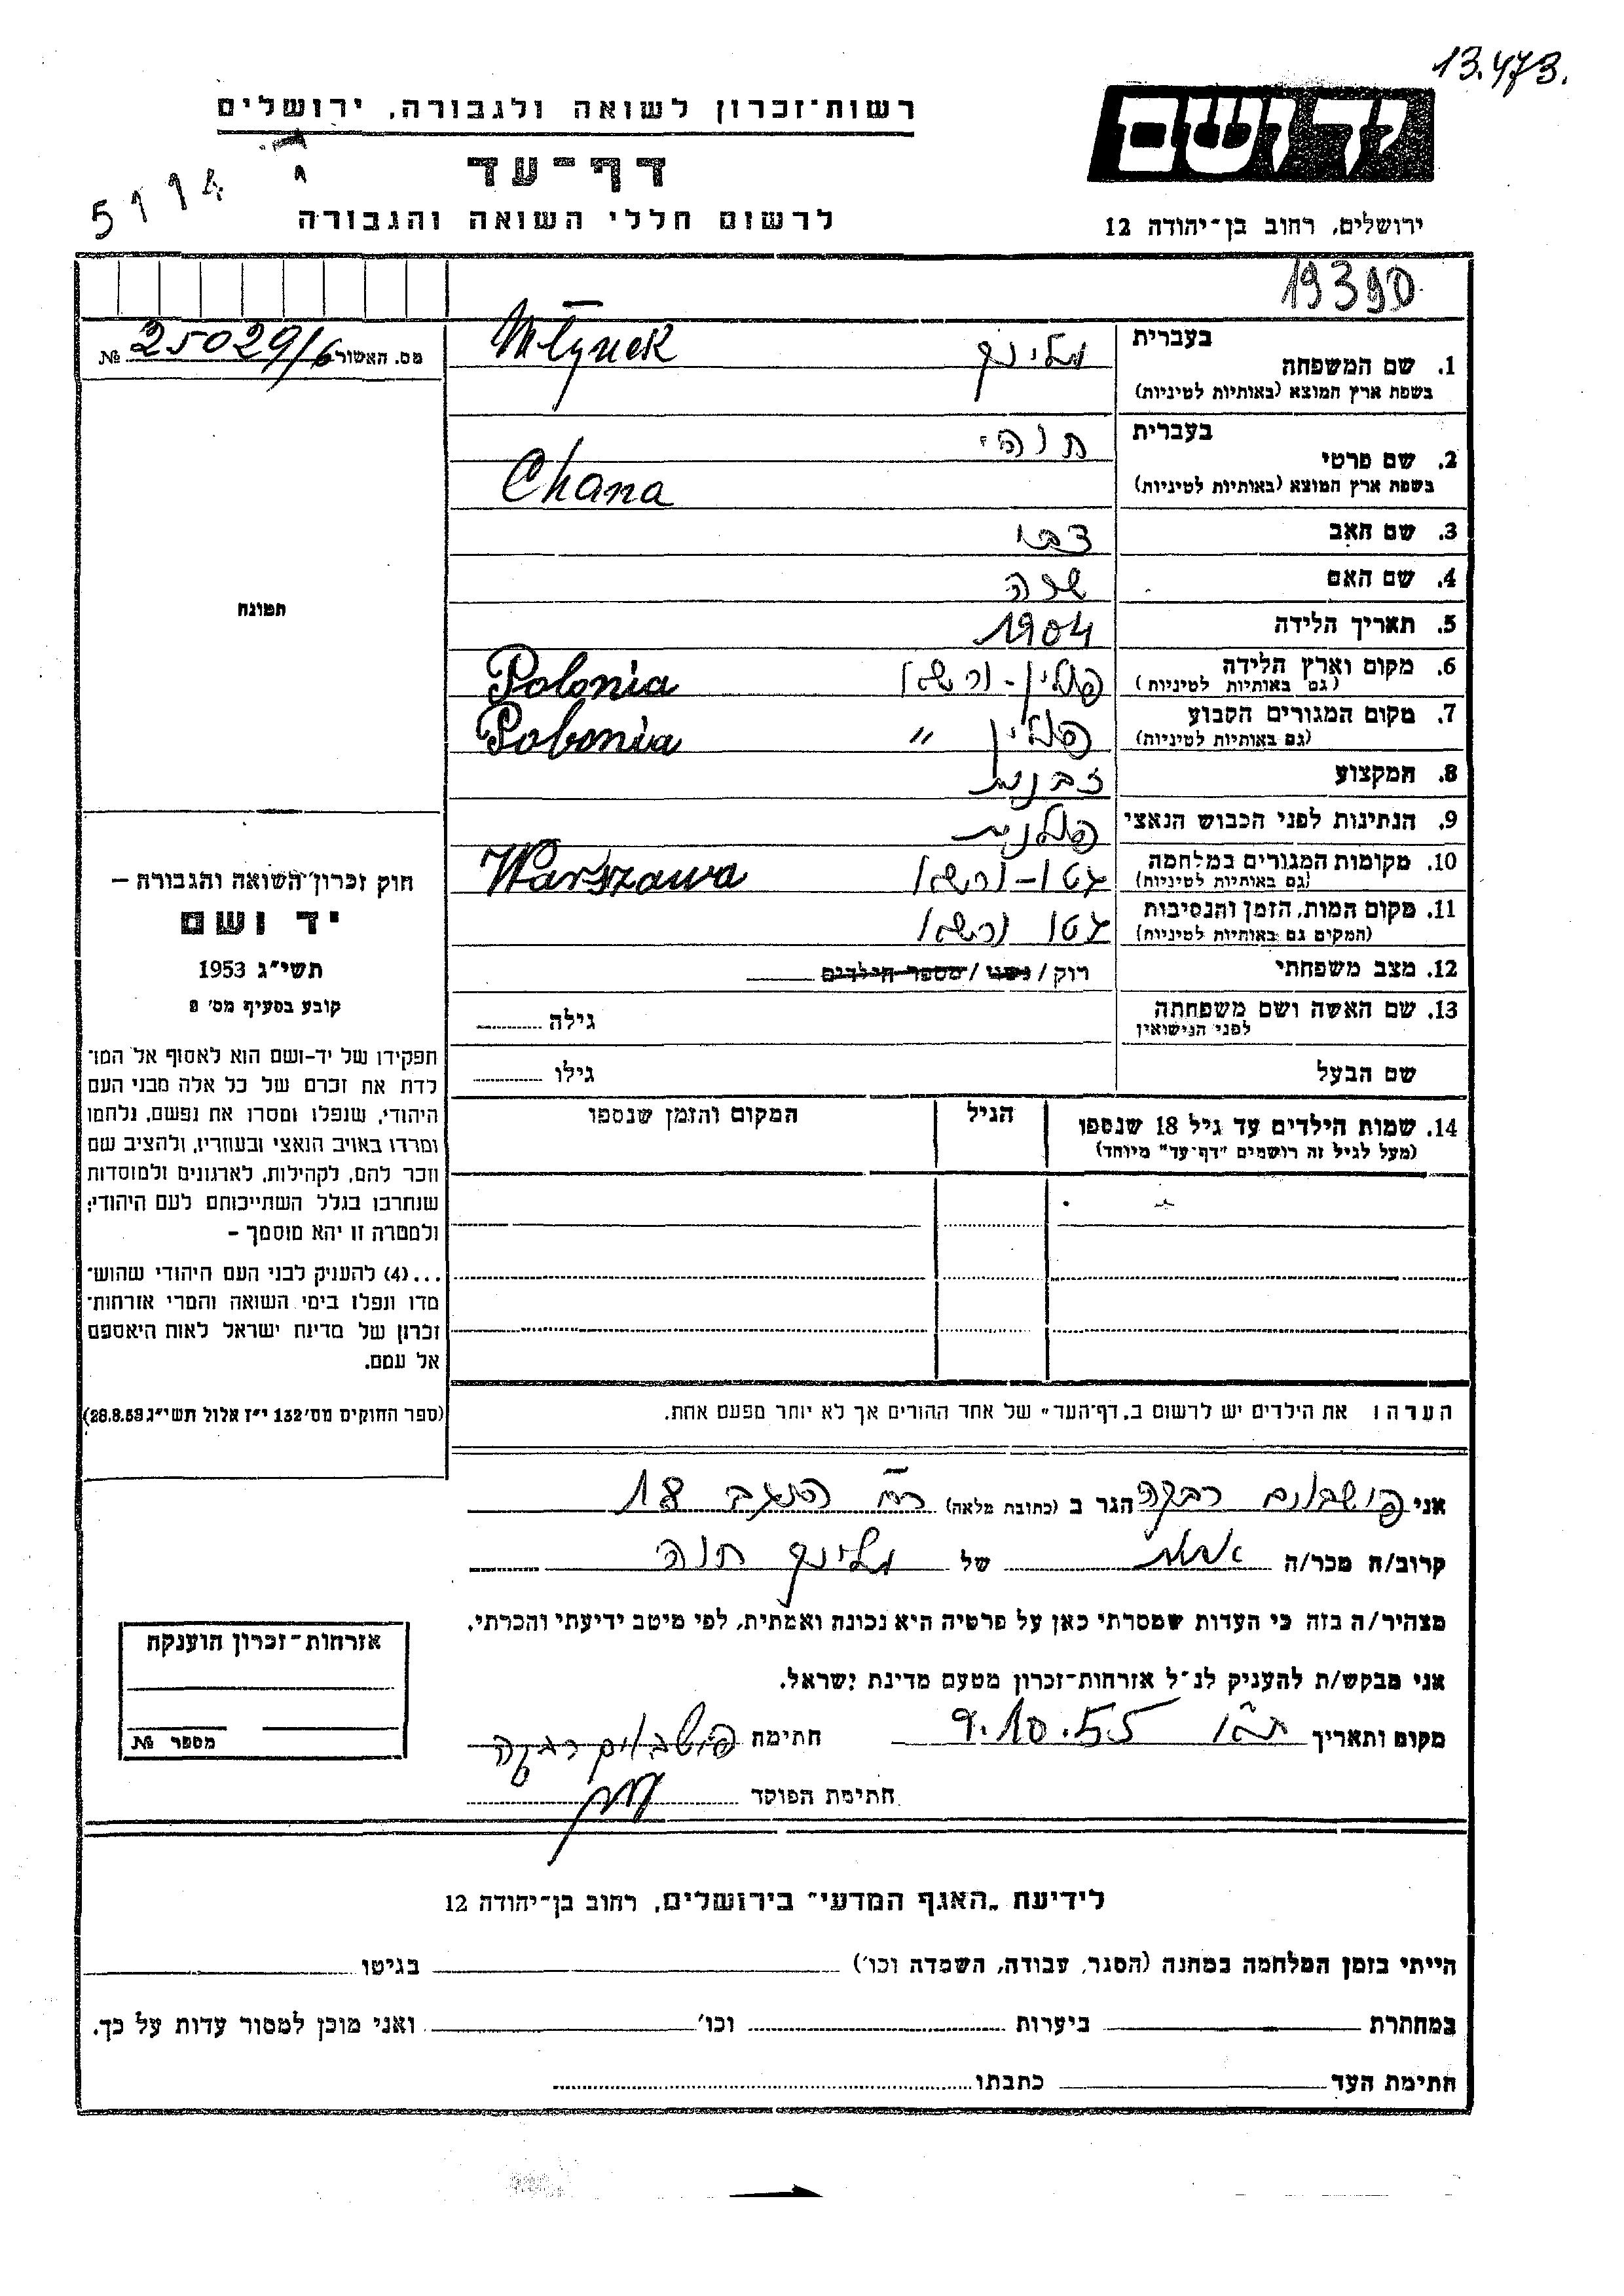 13.473.
רשות־זכרון לשואה ולגבורה, ירושלים
יד ושם
דף־עד
5114
לרשום חללי השואה והגבורה
ירושלים, רחוב בן־יהודה 12
19390
מס. האשור 25029/6 №
בעברית
1. שם המשפחה מלינק Młynek
בשפת ארץ המוצא (באותיות לטיניות)
בעברית
2. שם פרטי חנה Chana
בשפת ארץ המוצא (באותיות לטיניות)
3. שם האב צבי
4. שם האם שרה
5. תאריך הלידה 1904
6. מקום וארץ הלידה פולין - ורשא Polonia
(גם באותיות לטיניות)
7. מקום המגורים הקבוע פולין " Polonia
(גם באותיות לטיניות)
8. המקצוע זבנית
9. הנתינות לפני הכבוש הנאצי פולנית
10. מקומות המגורים במלחמה גטו - ורשא Warszawa
(גם באותיות לטיניות)
11. מקום המות, הזמן והנסיבות גטו ורשא
(המקום גם באותיות לטיניות)
12. מצב משפחתי רוק / נשוי / מספר הילדים
13. שם האשה ושם משפחתה גילה
לפני הנישואין
שם הבעל גילו
14. שמות הילדים עד גיל 18 שנספו הגיל המקום והזמן שנספו
(מעל לגיל זה רושמים "דף־עד" מיוחד)
תמונה
חוק זכרון השואה והגבורה –
יד ושם
תשי״ג 1953
קובע בסעיף מס׳ 2
תפקידו של יד-ושם הוא לאסוף אל המו־
לדת את זכרם של כל אלה מבני העם
היהודי, שנפלו ומסרו את נפשם, נלחמו
ומרדו באויב הנאצי ובעוזריו, ולהציב שם
וזכר להם, לקהילות, לארגונים ולמוסדות
שנחרבו בגלל השתייכותם לעם היהודי;
ולמטרה זו יהא מוסמך –
...(4) להעניק לבני העם היהודי שהוש־
מדו ונפלו בימי השואה והמרי אזרחות־
זכרון של מדינת ישראל לאות היאספם
אל עמם.
(ספר החוקים מס׳ 132 י״ז אלול תשי״ג 28.8.53)
הערה: את הילדים יש לרשום ב„דף־העד" של אחד ההורים אך לא יותר מפעם אחת.
אני פישבוים רבקה הגר ב (כתובת מלאה) הנגב 18
קרוב/ה מכר/ה אחות של מלינק חנה
מצהיר/ה בזה כי העדות שמסרתי כאן על פרטיה היא נכונה ואמתית, לפי מיטב ידיעתי והכרתי.
אני מבקש/ת להעניק לנ״ל אזרחות־זכרון מטעם מדינת ישראל.
מקום ותאריך ת״א 9.10.55 חתימה פישבוים רבקה
חתימת הפוקד
אזרחות־זכרון הוענקה
מספר №
לידיעת „האגף המדעי" בירושלים, רחוב בן־יהודה 12
הייתי בזמן המלחמה במחנה (הסגר, עבודה, השמדה וכו׳) בגיטו
במחתרת ביערות וכו׳ ואני מוכן למסור עדות על כך.
חתימת העד כתבתו